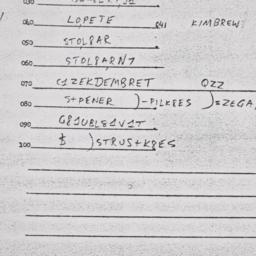 040 LOPETE 841 KIMBREW
050 STOLBAR
060 STOLBARN7
070 C1ZEKDEMBRET OZZ
080 S+PENER )-PILKBES )=ZEGA
090 G81UBL81V1T
100 $ )STRUS+KBES